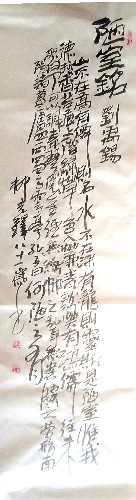 陋室銘
劉禹錫
山不在高有僊則名水不在深有龍則靈斯是陋室惟我
德馨苔痕上階綠草色入簾青談笑有鴻儒往來
無白丁可以調素琴閱金經無絲竹之亂耳無案牘之勞形南
陽諸葛廬西蜀子雲亭孔子云何陋之有
柳 八十一歲